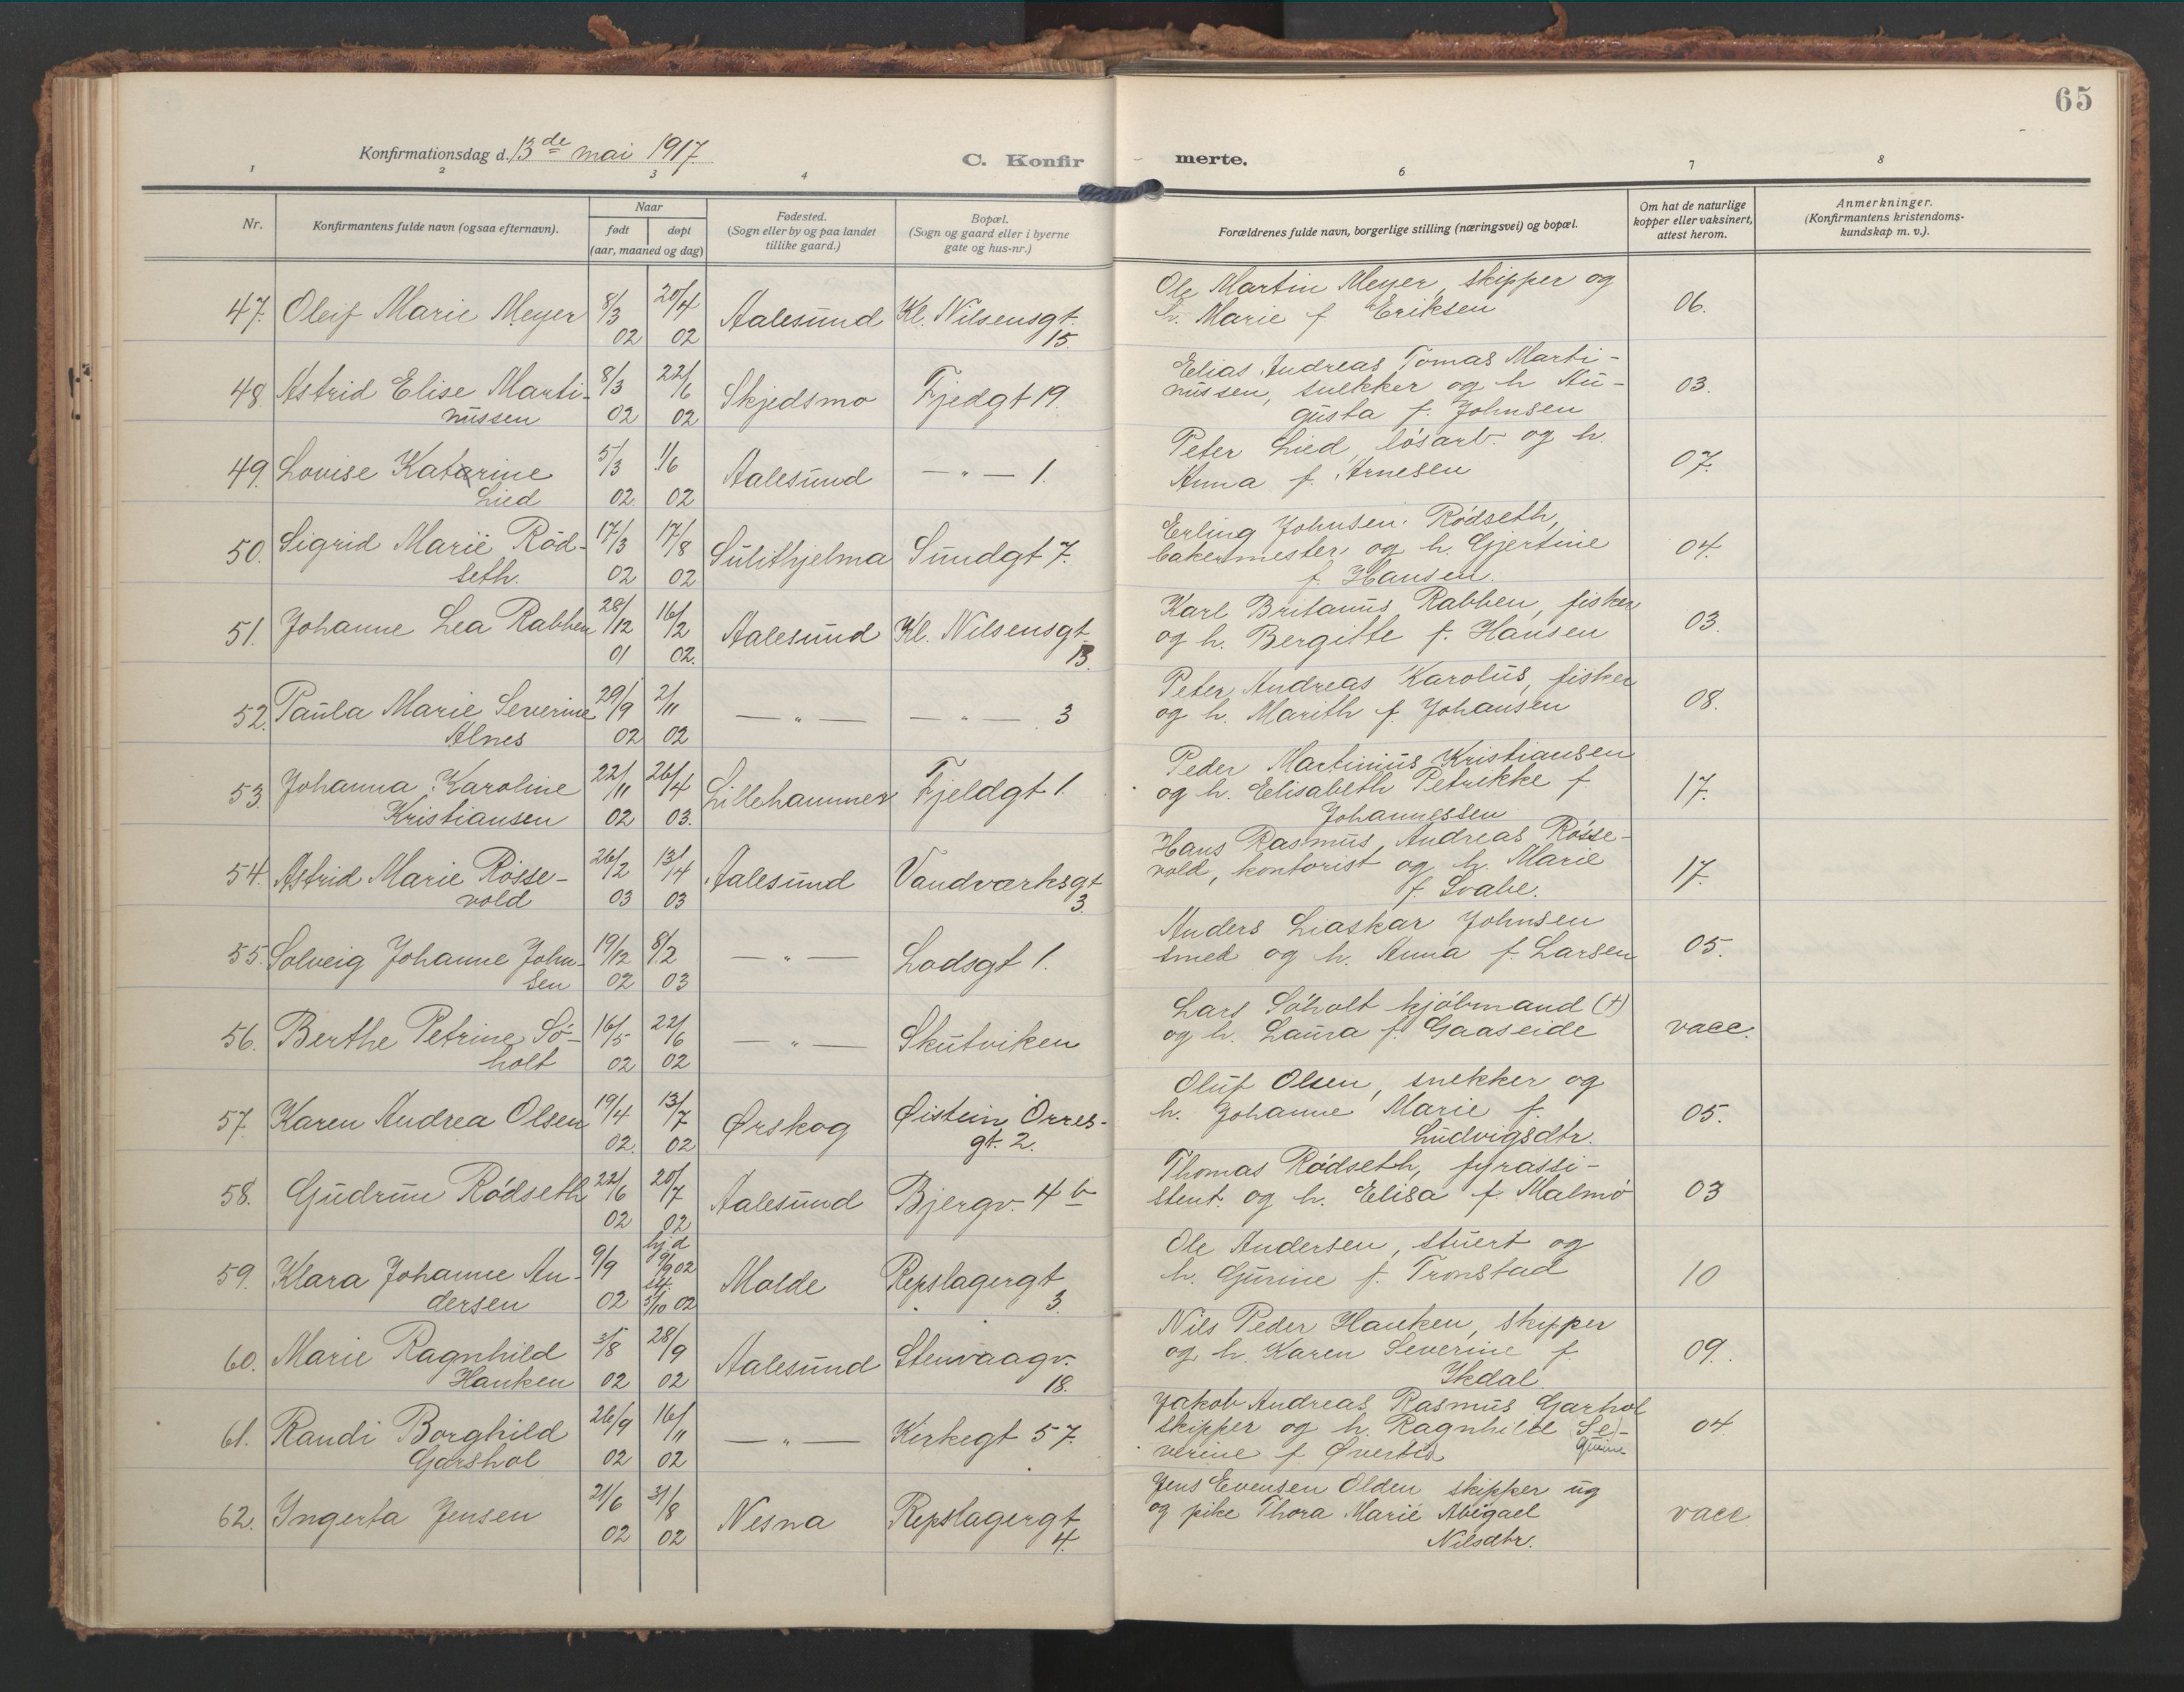 65
Konfirmationsdag d. 13de mai 1917
C. Konfirmerte.
1 2 3 4 6 7 8
Nr.
Konfirmantens fulde navn (ogsaa efternavn).
Naar
født døpt
(aar, maaned og dag)
Fødested.
(Sogn eller by og paa landet
tillike gaard.)
Bopæl.
(Sogn og gaard eller i byerne
gate og hus-nr.)
Forældrenes fulde navn, borgerlige stilling (næringsvei) og bopæl.
Om hat de naturlige
kopper eller vaksinert,
attest herom.
Anmerkninger.
(Konfirmantens kristendoms-
kundskap m. v.).
47. Oleif Marie Meyer 8/3 02 20/4 02 Aalesund Kl. Nilsensgt. 15.
Ole Martin Meyer, skipper og
Marie f Eriksen 06.
48. Astrid Elise Marti- 8/3 02 22/6 02 Skjedsmo Fjedgt 19.
nussen
Elias Andreas Tomas Marti-
nussen, snekker og h Au-
gusta f. Johnsen 03.
49. Lovise Katarine 5/3 02 1/6 02 Aalesund — " — 1.
Lied
Peter Lied, løsarb. og h.
Anna f. Arnesen 07.
50. Sigrid Marie Rød- 17/3 02 17/8 02 Sulithjelma Sundgt 7.
seth.
Erling Johnsen Rødseth,
bakermester og h. Gjertine
f. Hansen. 04.
51. Johanne Lea Rabben 28/12 01 16/2 02. Aalesund Kl. Nilsensgt 13.
Karl Britanus Rabben, fisker
og h. Bergitte f. Hansen 03.
52. Paula Marie Severine 29/9 02 2/11 02 — " — — " — 3
Alnes
Peter Andreas Karolus, fisker
og h. Marith f. Johansen 08.
53. Johanna Karoline 22/11 02 26/4 03. Lillehammer Fjeldgt 1.
Kristiansen
Peder Martinius Kristiansen
og h. Elisabeth Petrikke f.
Johannessen 17.
54. Astrid Marie Røsse- 26/2 03 13/4 03 Aalesund Vandværksgt 3.
vold
Hans Rasmus Andreas Røsse-
vold, kontorist og h. Marie
f. Svabe. 17.
55. Solveig Johanne John- 19/12 02 8/2 03 — " — Lodsgt 1.
sen
Anders Liaskar Johnsen
smed og h. Anna f. Larsen 05.
56. Berthe Petrine Sø- 16/5 02 22/6 02 — " — Skutviken
holt
Lars Søholt kjøbmand (+)
og h. Laura f. Gaaseide vacc.
57. Karen Andrea Olsen 19/4 02. 13/7 02 Ørskog Øistein Orres-
gt. 2.
Oluf Olsen, snekker og
h. Johanne Marie f.
Ludvigsdtr. 05.
58. Gudrun Rødseth 22/6 02 20/7 02 Aalesund Bjergv. 4 b
Thomas Rødseth, fyrassi-
stent. og h. Elisa f. Malmø 03
59. Klara Johanne An- 9/9 02 hj.d 9/9 02 st 5/10 02 Molde Repslagergt 3.
dersen
Ole Andersen, stuert og
h. Gurine f. Tronstad 10
60. Marie Ragnhild 3/8 02 28/9 02 Aalesund Stenvaagv. 18.
Hanken
Nils Peder Hanken, skipper
og h. Karen Severine f.
Ikdal 09.
61. Randi Borghild 26/9 02 16/11 02 — " — Kirkegt 57.
Garshol
Jakob Andreas Rasmus Garhol
skipper og h. Ragnhild Se-
verine f Øverlid Gurine 04
62. Ingerta Jensen 21/6 02 31/8 02 Nesna Repslagergt 4.
Jens Evensen Olden skipper ug
og pike Thora Marie Abigael
Nilsdtr. vacc.